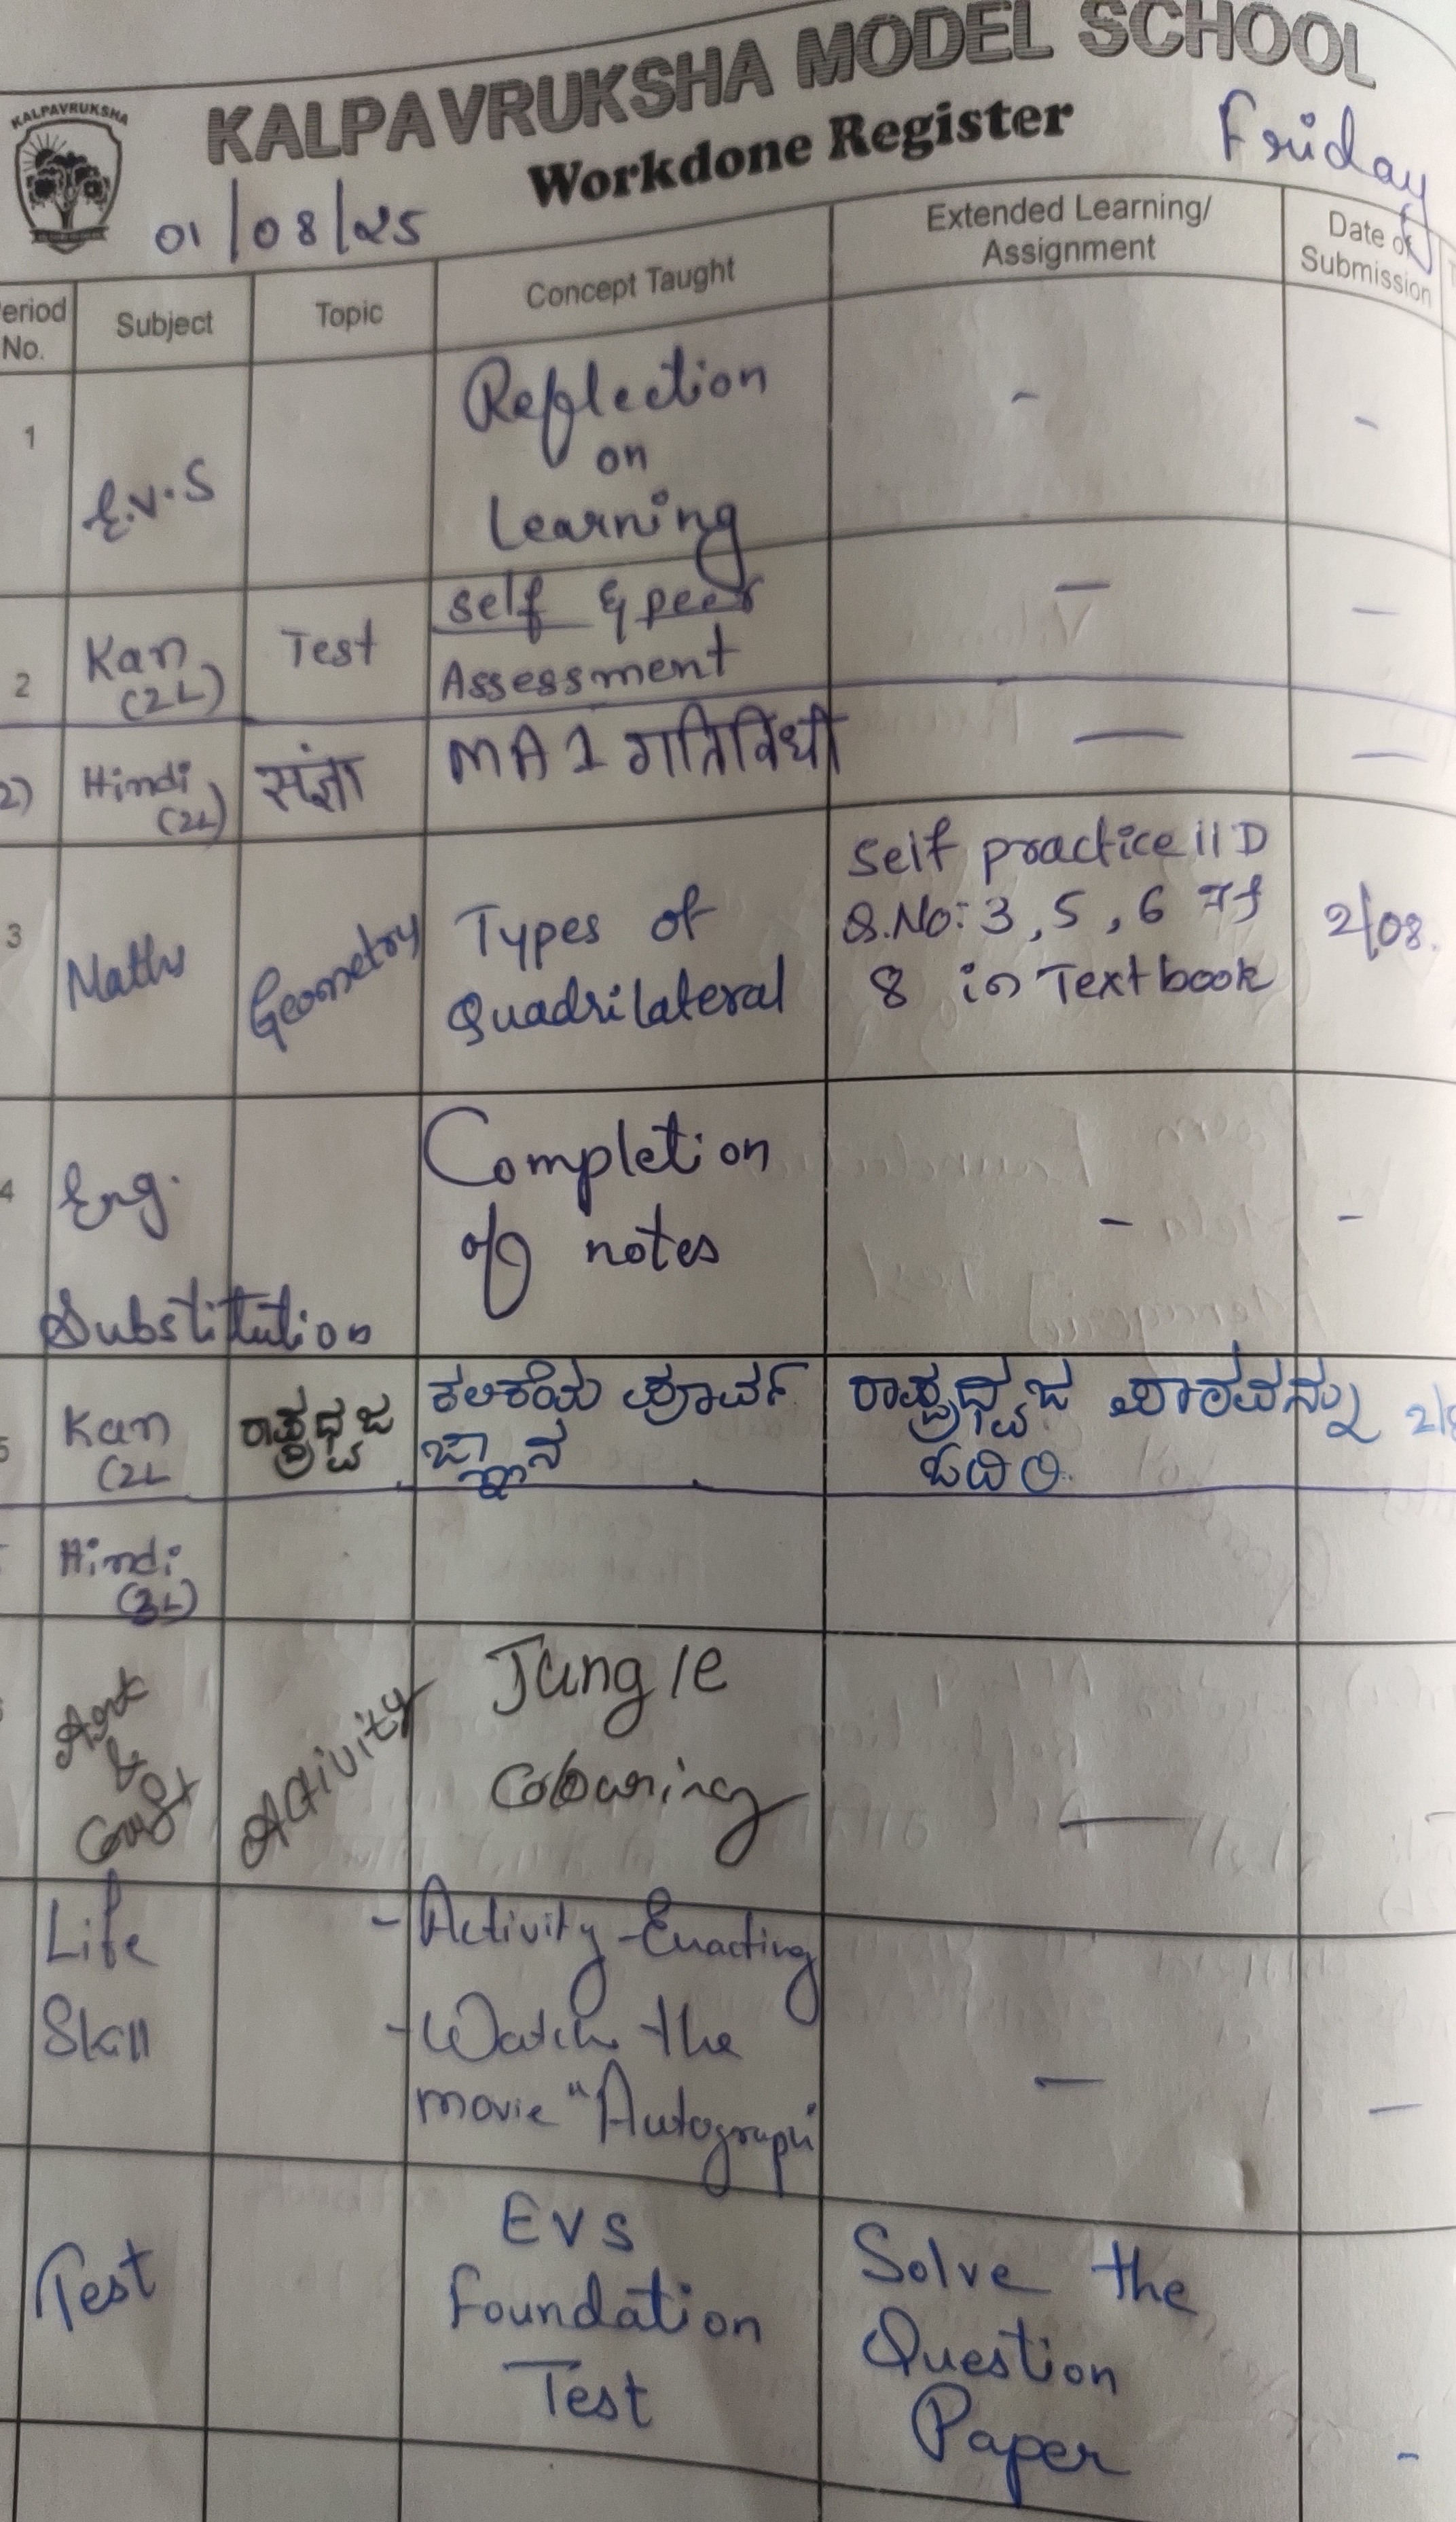 KALPAVRUKSHA MODEL SCHOOL
KALPAVRUKSHA
Workdone Register
Friday
01/08/25
eriod No.
Subject
Topic
Concept Taught
Extended Learning/
Assignment
Date of
Submission
1
E.V.S
Reflection
on
Learning
-
-
2
Kan
(2L)
Test
self & peer
Assessment
—
—
2)
Hindi
(2L)
संज्ञा
MA 1 गतिविधी
—
—
3
Maths
Geometry
Types of
Quadrilateral
Self practice 11D
Q.No: 3, 5, 6, 7
8 in Textbook
2/08.
4
Eng.
Substitution
Completion
of notes
-
-
5
Kan
(2L
ರಾಷ್ಟ್ರಧ್ವಜ
ಕಲಿಕೆಯ ಪೂರ್ವ
ಜ್ಞಾನ
ರಾಷ್ಟ್ರಧ್ವಜ ಪಾಠವನ್ನು
ಓದಿರಿ.
2/
Hindi
(3L)
Art
&
Craft
Activity
Jungle
Colouring
—
Life
Skill
- Activity - Enacting
- Watch the
movie "Autograph"
—
—
Test
EVS
Foundation
Test
Solve the
Question
Paper
-